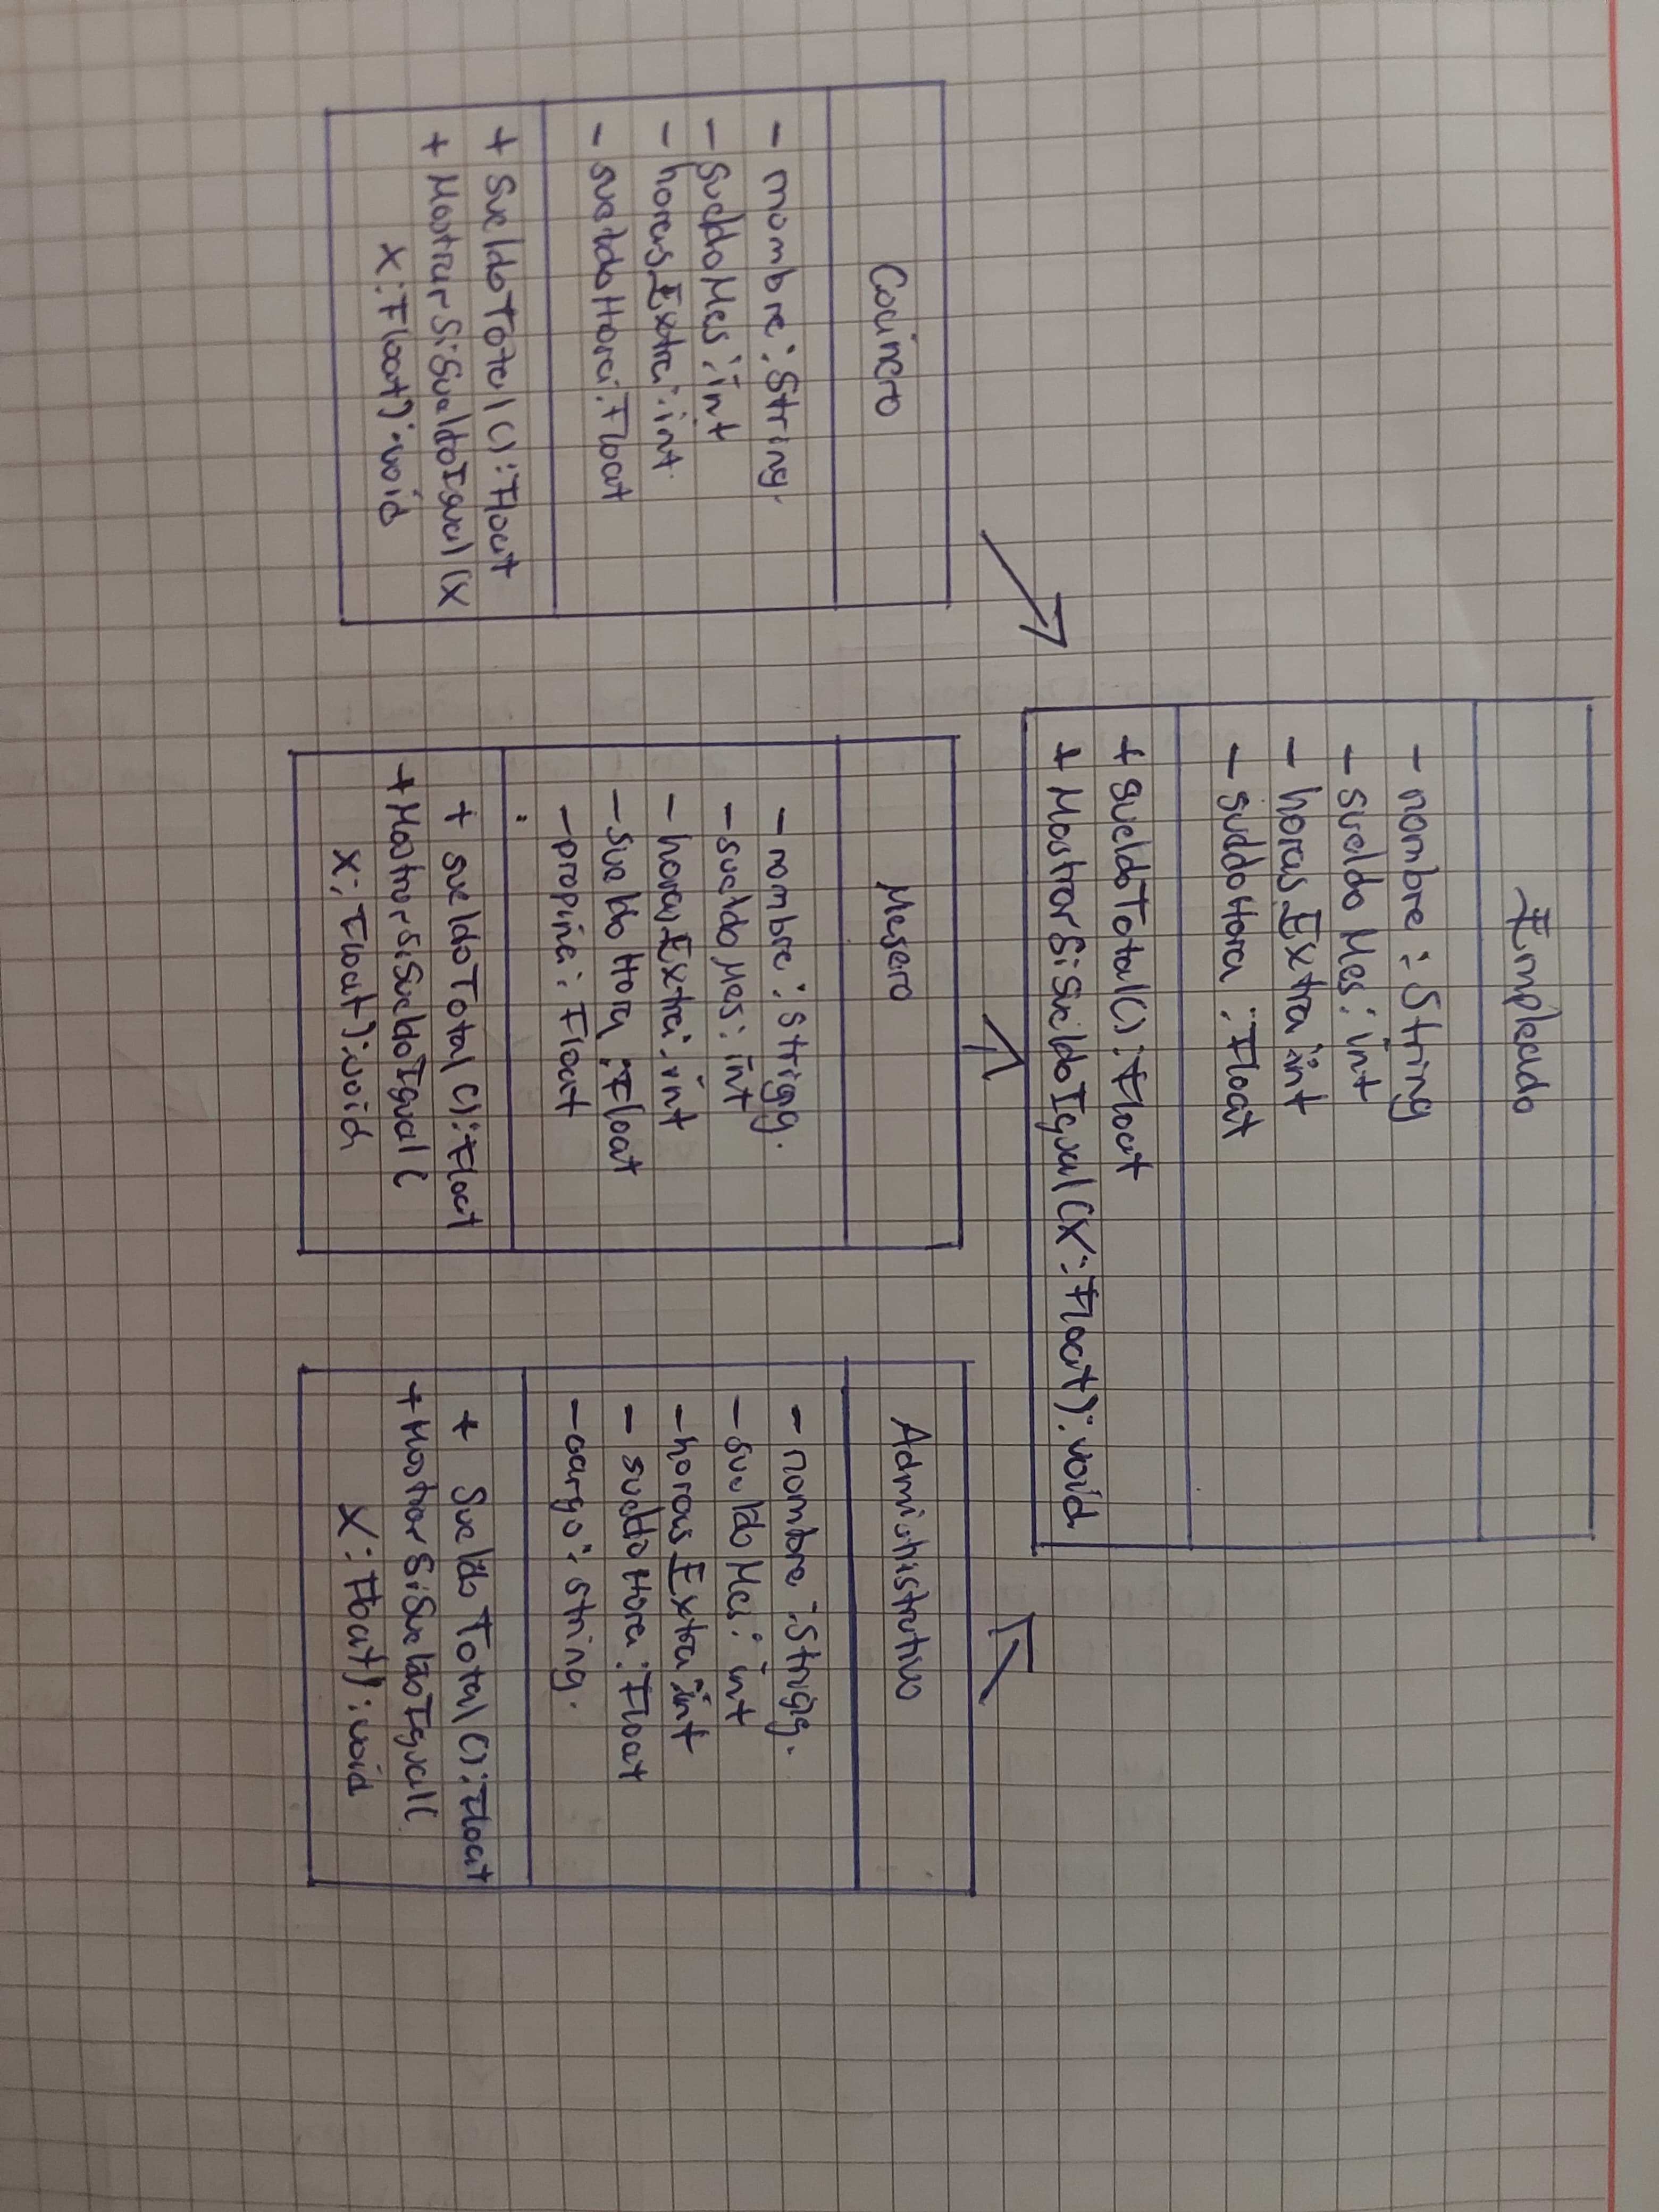 Empleado
- nombre : String
- sueldo Mes : int
- horas Extra : int
- sueldo Hora : Float
+ sueldo Total () : Float
+ Mostrar Si Sueldo Igual (X : Float) : void
Cocinero
- nombre : String.
- sueldo Mes : int
- horas Extra : int.
- sueldo Hora : Float
+ Sueldo Total () : Float
+ Mostrar Si Sueldo Igual (X
X : Float) : void
Mesero
- nombre : String.
- sueldo Mes : int
- horas Extra : int
- sueldo Hora : Float
- propina : Float
+ sueldo Total () : Float
+ Mostrar Si Sueldo Igual (
X : Float) : void
Administrativo
- nombre : String.
- sueldo Mes : int
- horas Extra : int
- sueldo Hora : Float
- cargo : String.
+ Sueldo Total () : Float
+ Mostrar Si Sueldo Igual (
X : Float) : void